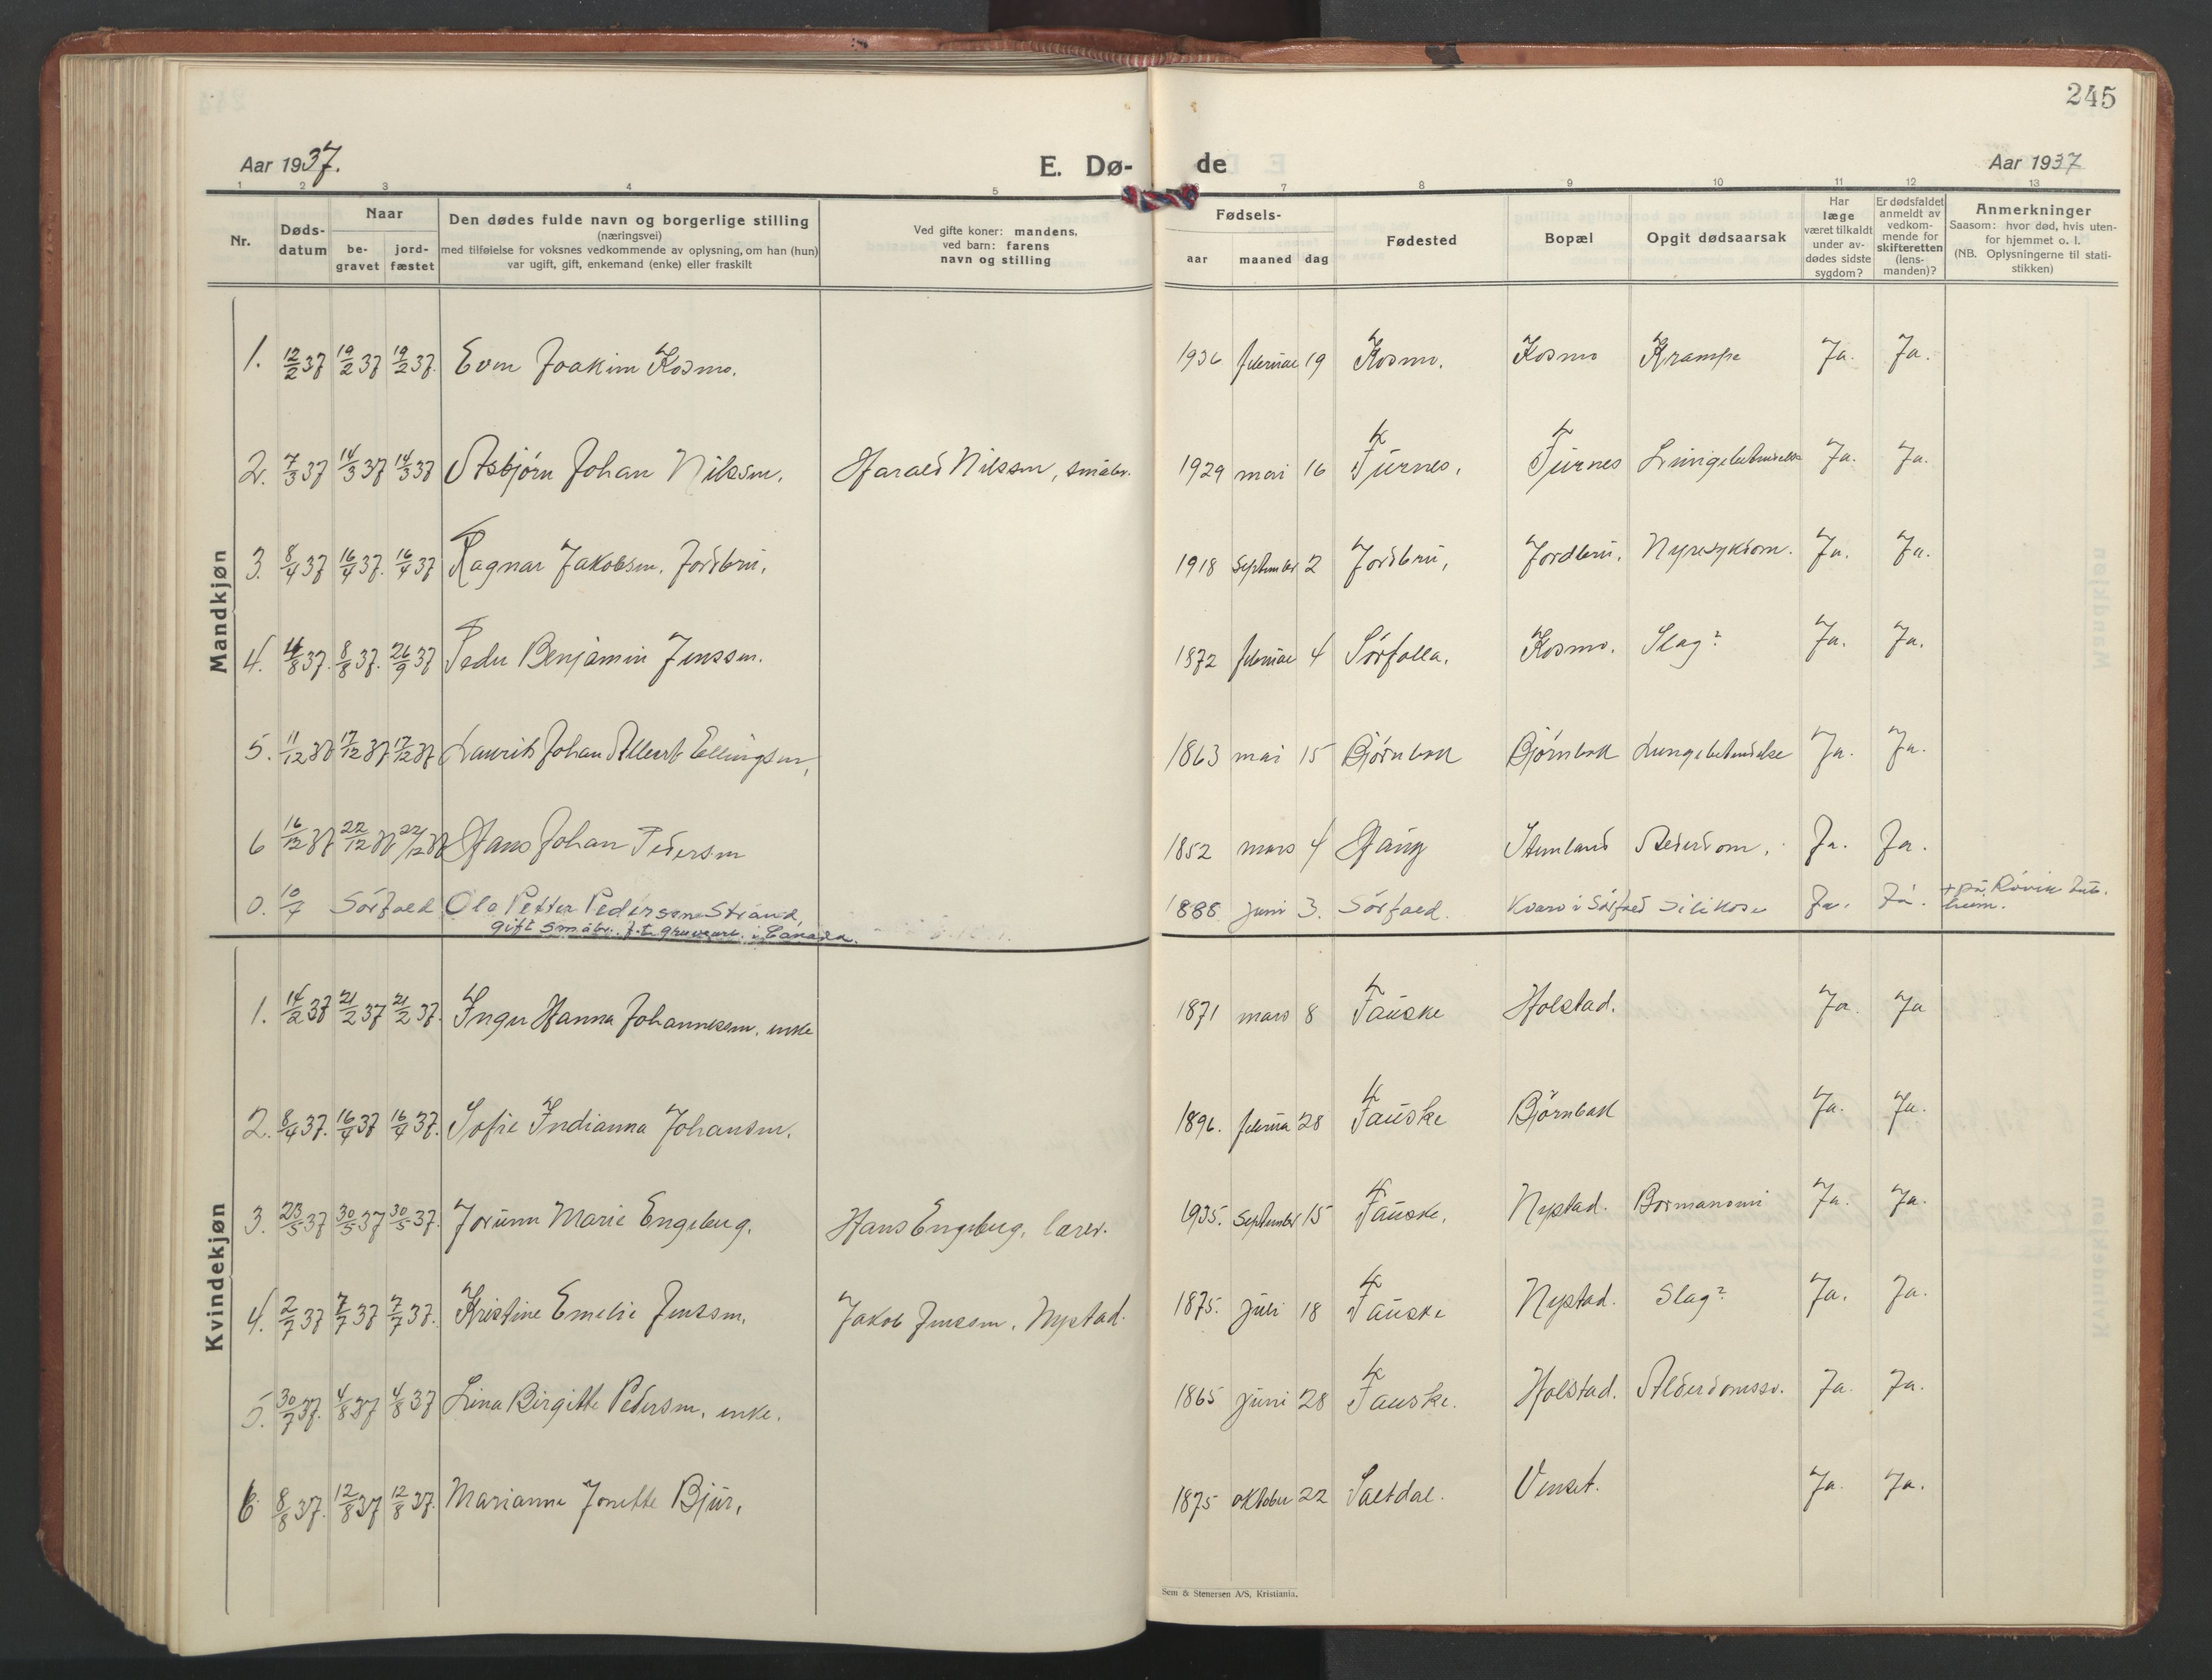 245
Aar 1937.
E. Dø-
de
Aar 1937
1 2 3 4 5 7 8 9 10 11 12 13
Nr.
Døds-
datum
Naar
be-
gravet
jord-
fæstet
Den dødes fulde navn og borgerlige stilling
(næringsvei)
med tilføielse for voksnes vedkommende av oplysning, om han (hun)
var ugift, gift, enkemand (enke) eller fraskilt
Ved gifte koner: mandens,
ved barn: farens
navn og stilling
Fødsels-
aar maaned dag
Fødested
Bopæl
Opgit dødsaarsak
Har
læge
været tilkaldt
under av-
dødes sidste
sygdom?
Er dødsfaldet
anmeldt av
vedkom-
mende for
skifteretten
(lens-
manden)?
Anmerkninger
Saasom: hvor død, hvis uten-
for hjemmet o. l.
(NB. Oplysningerne til stati-
stikken)
Mandkjøn
1. 12/2 37 19/2 37 19/2 37. Even Joakim Kosmo. 1936 februar 19 Kosmo. Kosmo Krampe Ja. Ja.
2. 7/3 37 14/3 37 14/3 37 Asbjørn Johan Nilssen. Harald Nilssen, småbr. 1929 mai 16 Tjurnes. Tjurnes Lungebetendelse Ja. Ja.
3. 8/4 37 16/4 37. 16/4 37 Ragnar Jakobsen. Jordbru. 1918 september 2 Jordbru, Jordbru. Nyresykdom. Ja. Ja.
4. 4/8 37. 8/8 37. 26/9 37 Peder Benjamin Jenssen. 1872 februar 4 Sørfolla. Kosmo. Slag? Ja. Ja.
5. 11/12 37 17/12 37 17/12 37 Laurits Johan Albert Ellingsen, 1863 mai 15 Bjørnbak Bjørnbak Lungebetendelse Ja. Ja.
6 16/12 37 22/12 37 22/12 37 Hans Johan Pedersen 1852 mars 4 Haug Stemland Alderdom. Ja. Ja.
0. 10/7 Sørfold Ola Petter Pedersen Strand, 1888 juni 3. Sørfold. Kvarv i Sørfold Silikose Ja. Ja. + på Røvik tub.
gift småbr. f.t. gruvearb. i Canada. heim.
Kvindekjøn
1. 14/2 37 21/2 37 21/2 37. Inger Hanna Johannessen, enke 1871 mars 8 Fauske Holstad. Ja. Ja
2. 8/4 37. 16/4 37 16/4 37. Sofie Indianna Johansen. 1896. februa 28 Fauske Bjørnbak Ja. Ja.
3. 23/5 37 30/5 37 30/5 37. Jorunn Marie Engeberg. Hans Engeberg, lærer. 1935. september 15 Fauske. Nystad. Ja. Ja.
4. 2/7 37 7/7 37 7/7 37. Kristine Emelie Jenssen. Jakob Jenssen. Nystad. 1875. juli 18 Fauske Nystad. Slag? Ja. Ja.
5. 30/7 37. 4/8 37 4/8 37 Lina Birgitte Pedersen. enke. 1865 juni 28 Fauske. Holstad. Alderdomssv. Ja. Ja.
6 8/8 37. 12/8 37 12/8 37. Marianne Jonette Bjur, 1875 oktober 22 Saltdal. Venset. Ja. Ja.
Sem & Stenersen A/S, Kristiania.